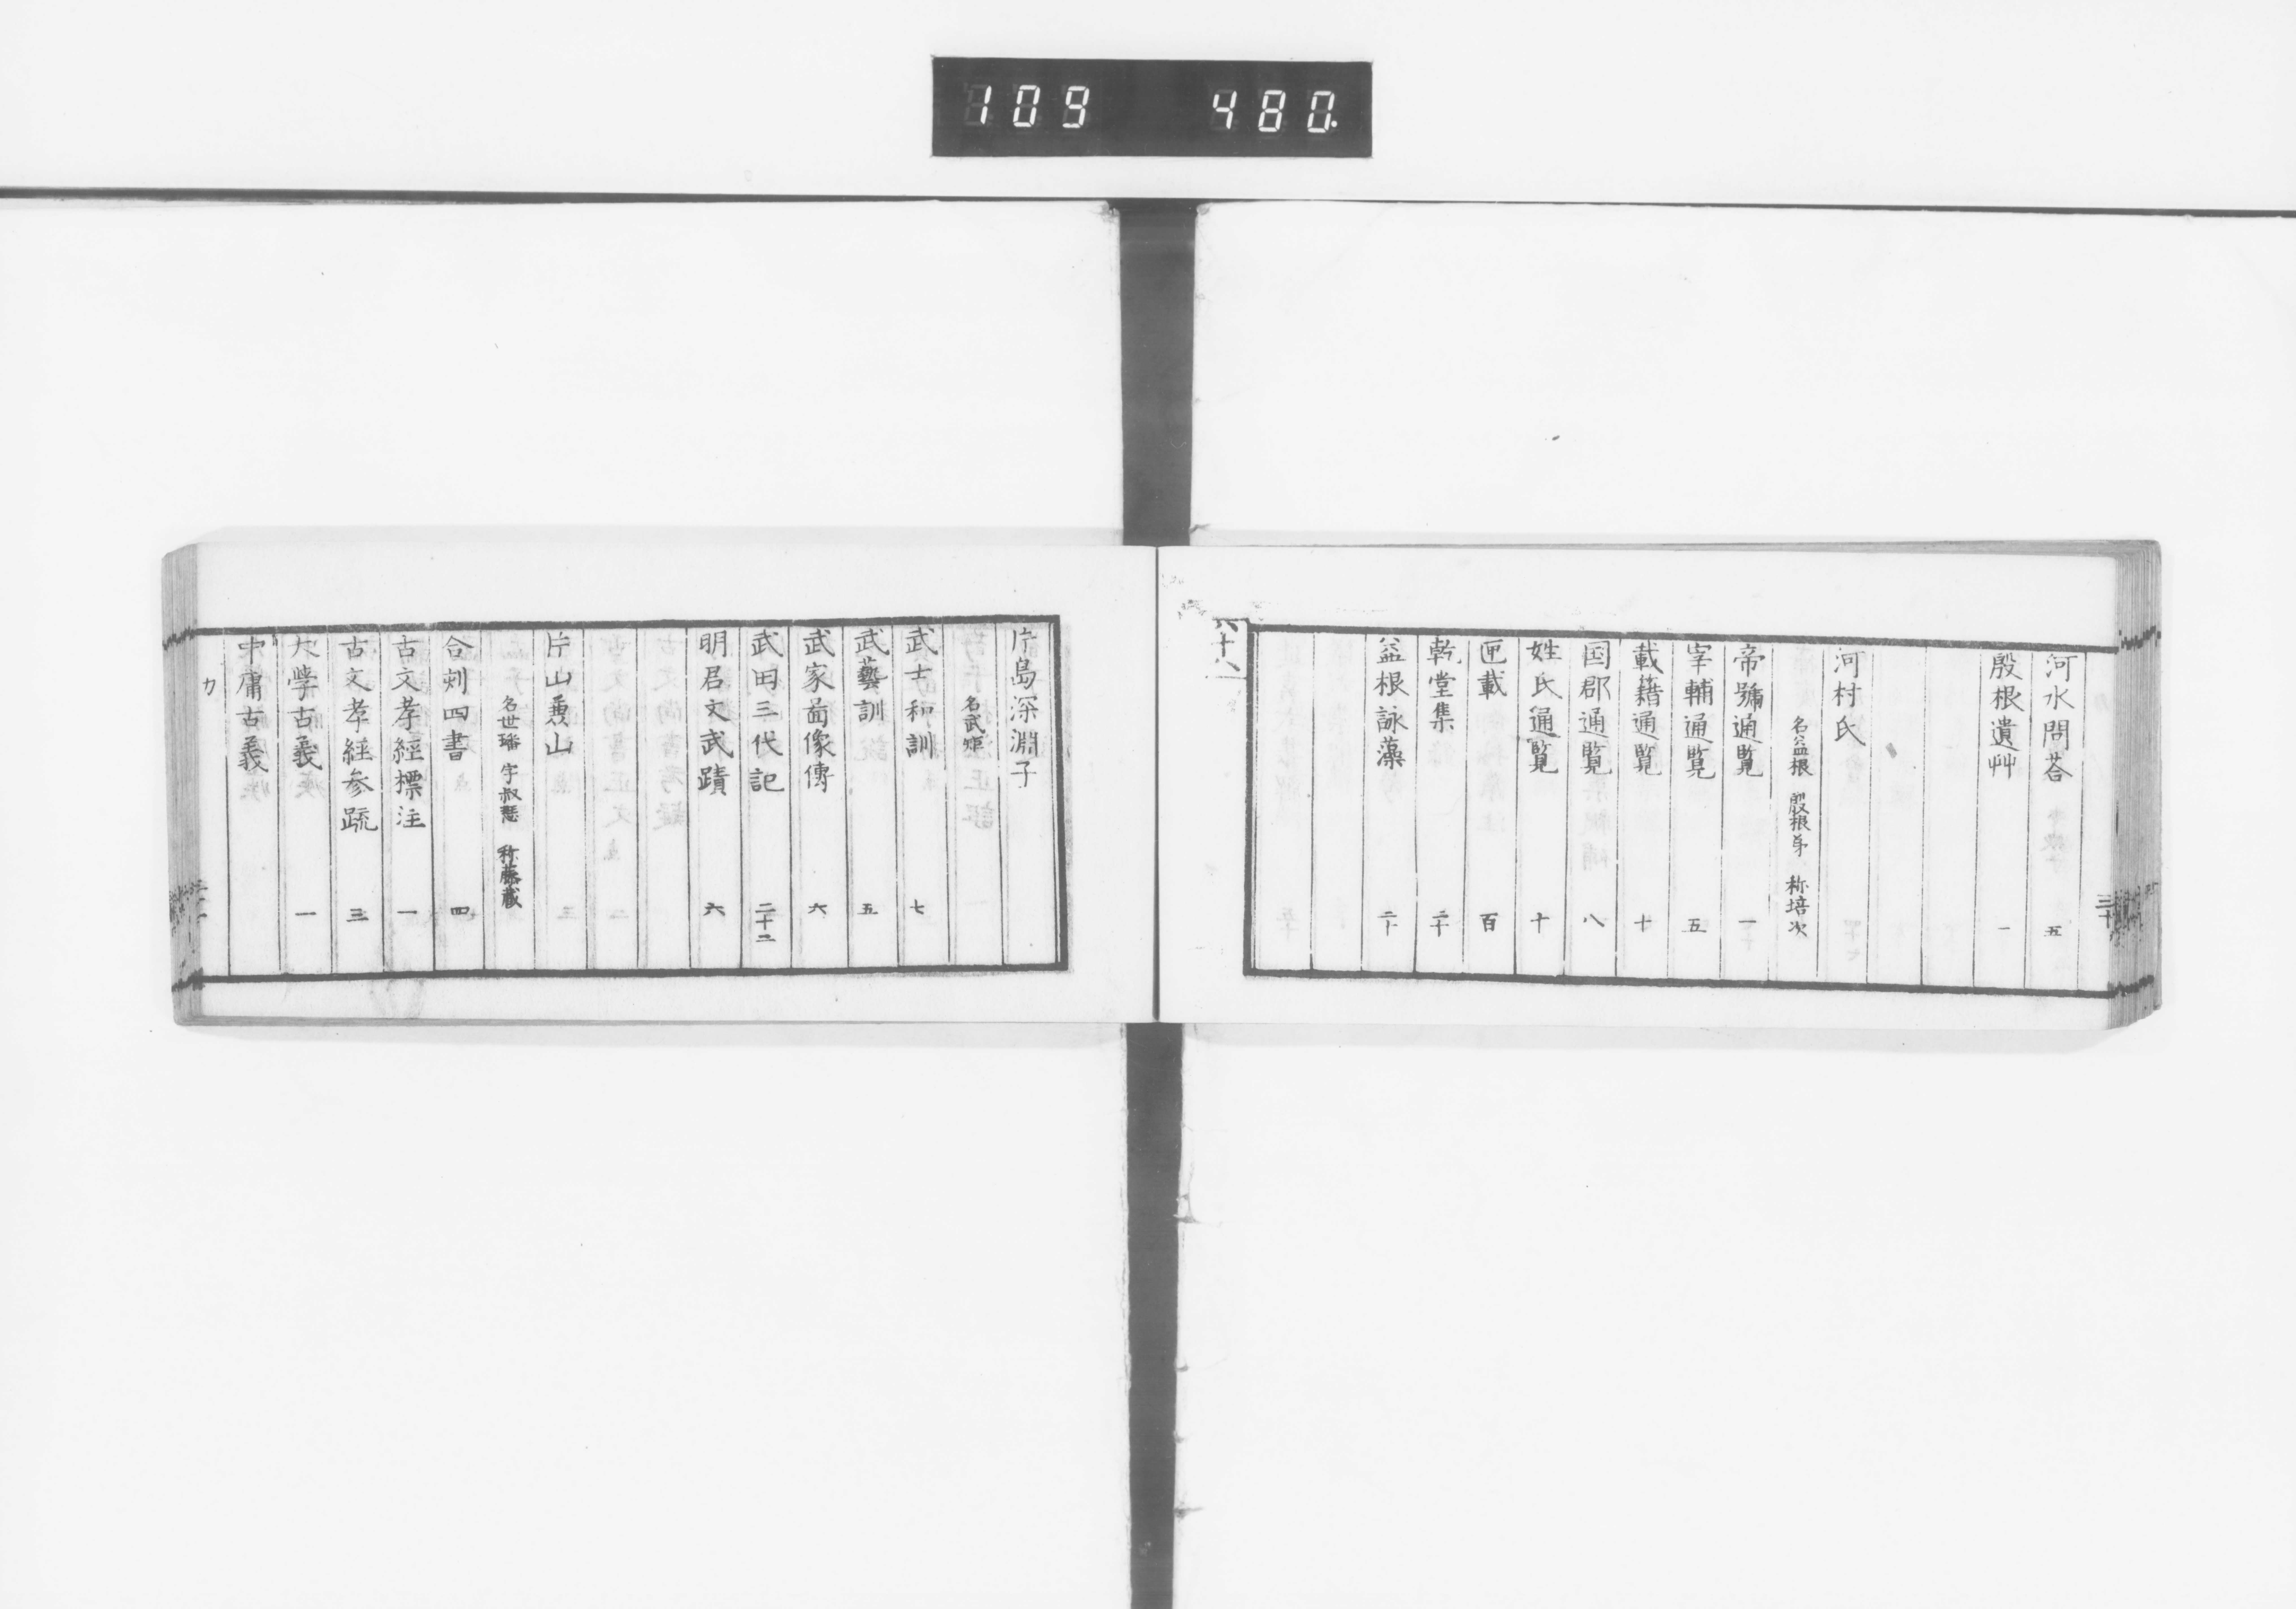 109 480
河水問荅 五
殷根遺艸 一
河村氏
名益根 殷根弟 称培次
帝號通覧 一
宰輔通覧 五
載籍通覧 十
国郡通覧 八
姓氏通覧 十
匣載 百
乾堂集 二十
益根詠藻 二十
六十八
片島深淵子
名武矩
武士和訓 七
武藝訓 五
武家𦥑像傳 六
武田三代記 二十二
明君文武蹟 六
片山兼山
名世璠 字叔瑟 称藤蔵
合刻四書 四
古文孝經標注 一
古文孝經参疏 三
大學古義 一
中庸古義
カ